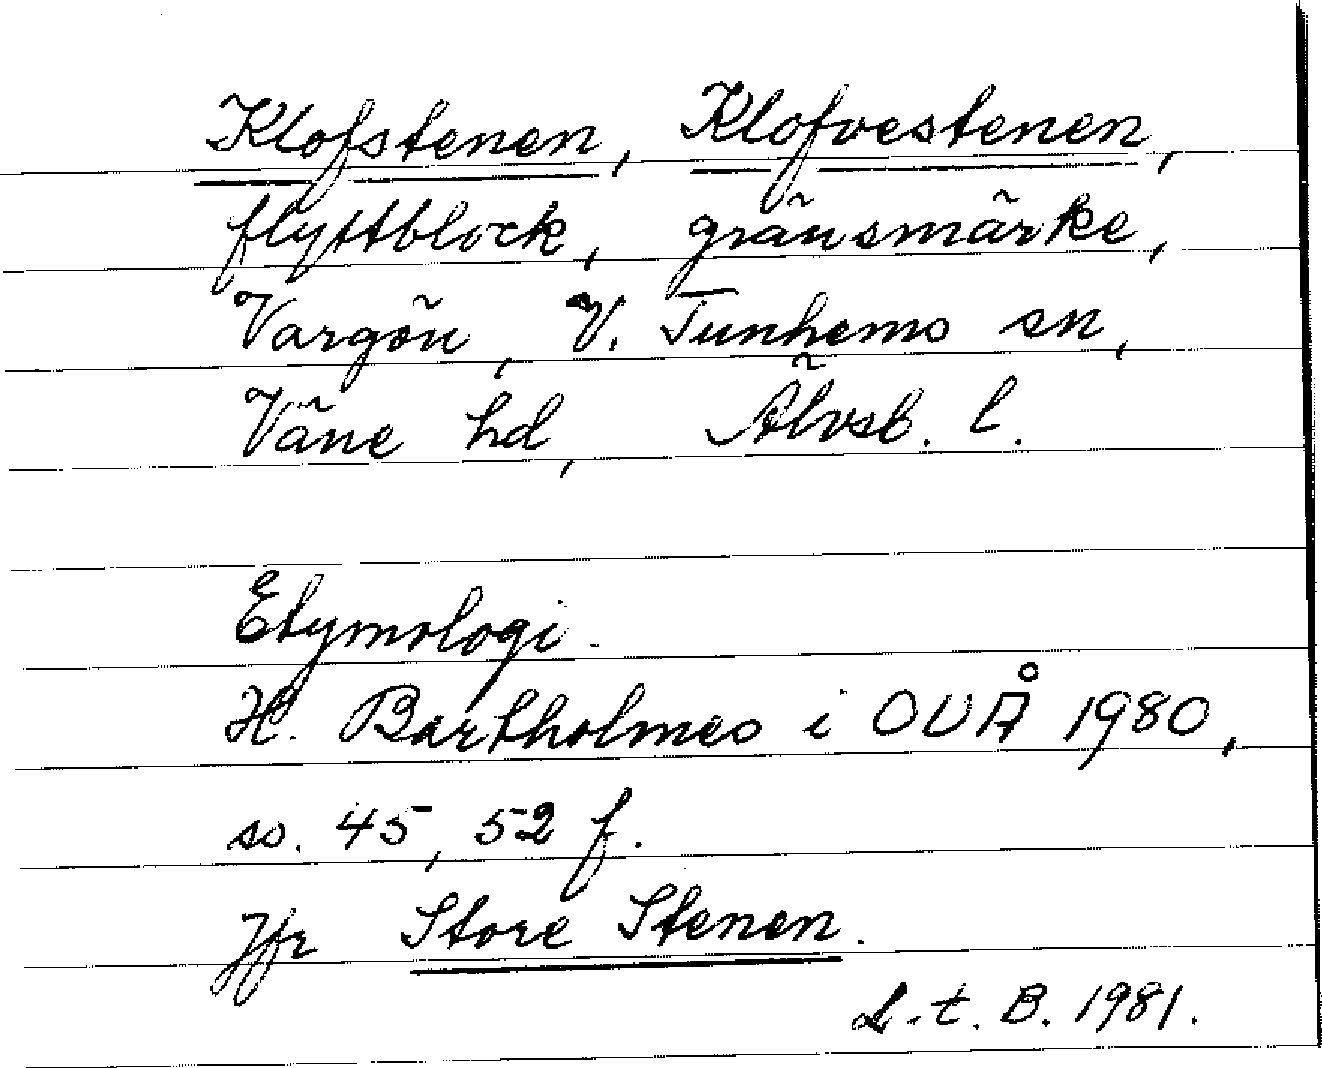 Klofstenen, Klofvestenen,
flyttblock, gränsmärke,
Vargön, V. Tunhems sn,
Väne hd, Älvsb. l.
Etymologi.
H. Bartholmes i OUÅ 1980,
ss. 45, 52 f.
Jfr Store Stenen.
L.t.B. 1981.